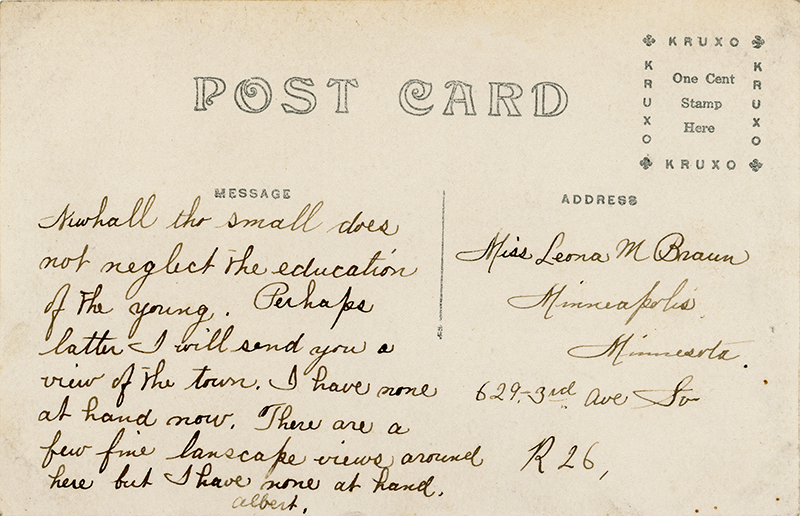 POST CARD
KRUXO
KRUXO
KRUXO
One Cent
Stamp
Here
KRUXO
MESSAGE
Newhall tho small does
not neglect the education
of the young. Perhaps
latter I will send you a
view of the town. I have none
at hand now. There are a
few fine lanscape views around
here but I have none at hand.
Albert.
ADDRESS
Miss Leona M Braun
Minneapolis
Minnesota.
629-3rd Ave So
R 26,